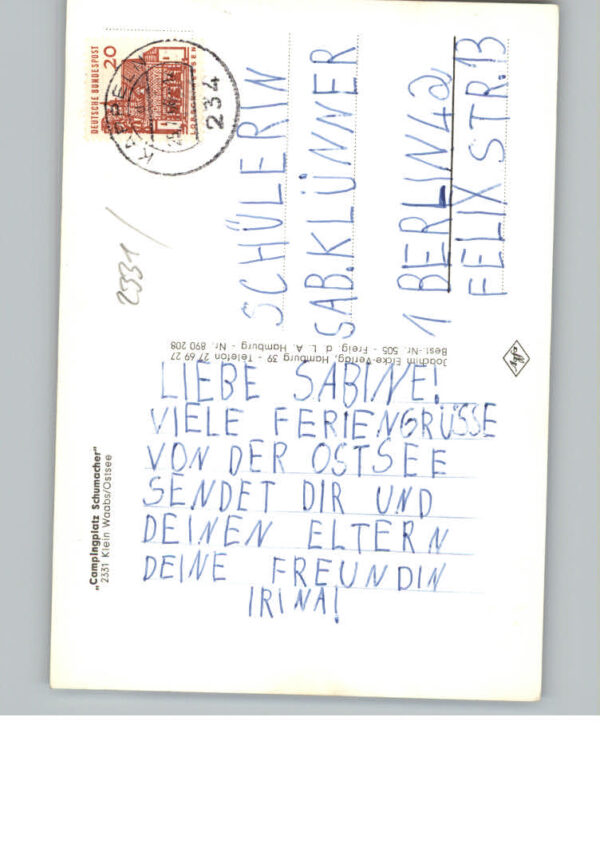 LIEBE SABINE!
VIELE FERIENGRÜSSE
VON DER OSTSEE
SENDET DIR UND
DEINEN ELTERN
DEINE FREUNDIN
IRINA!
SCHÜLERIN
SAB. KLÜNNER
1 BERLIN 42
FELIXSTR. 13
2331/
„Campingplatz Schumacher"
2331 Klein Waabs/Ostsee
Joachim Eicke-Verlag, Hamburg 39 - Telefon 27 69 27
Best.-Nr. 505 - Freig. d. L. A. Hamburg - Nr. 890 208
DEUTSCHE BUNDESPOST
20
234
Agfa